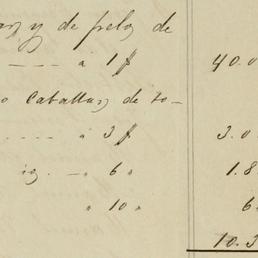 y de pelo de
---- á 1 $ 40.0
o caballar de to-
---- á 3 $ 3.0
ig. -- 6 " 1.8
" 10 " 6
10.3